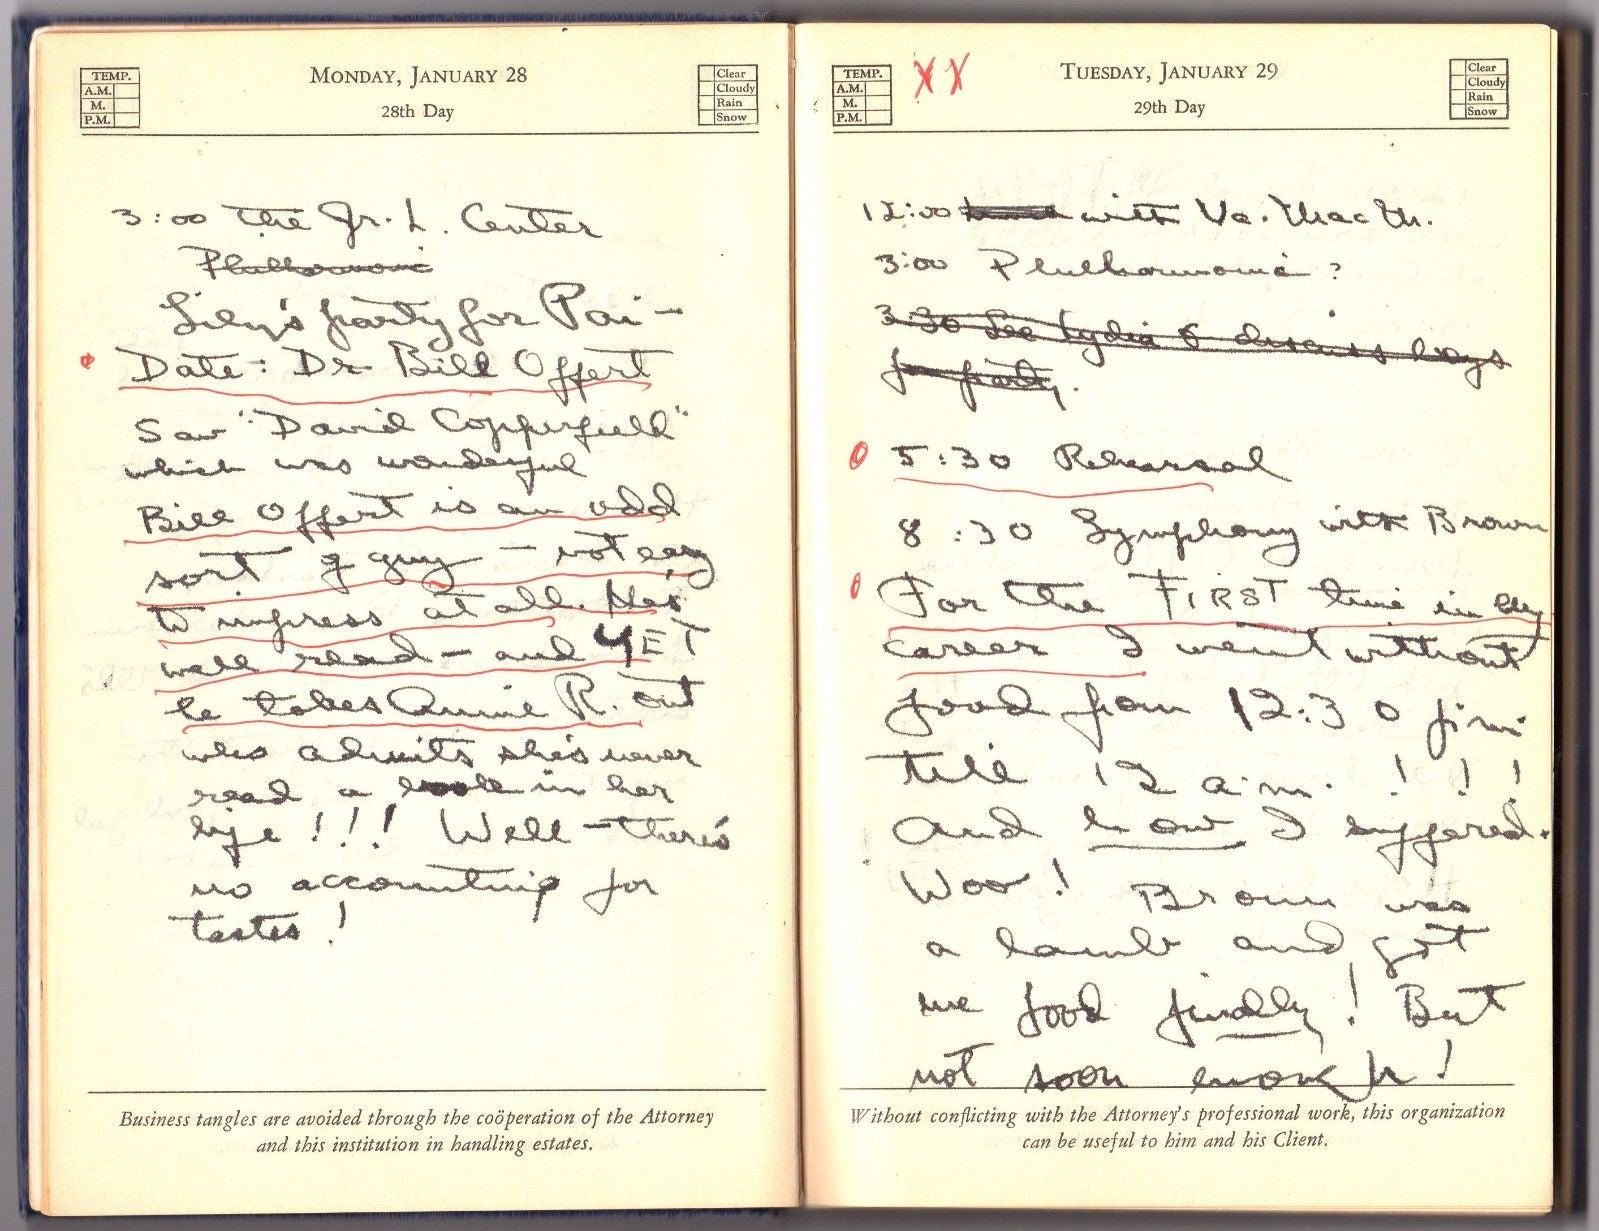 TEMP.
A.M.
M.
P.M.
MONDAY, JANUARY 28
28th Day
Clear
Cloudy
Rain
Snow
3:00 the Jr. L. Center
Philharmonic
Lily's party for Pai-
Date: Dr Bill Offert
Saw "David Copperfield"
which was wonderful
Bill Offert is an odd
sort of guy - not easy
to impress at all. He's
well read - and YET
he takes Annie R. out
who admits she's never
read a book in her
life!!! Well - there's
no accounting for
tastes!
Business tangles are avoided through the coöperation of the Attorney
and this institution in handling estates.
TEMP.
A.M.
M.
P.M.
XX
TUESDAY, JANUARY 29
29th Day
Clear
Cloudy
Rain
Snow
12:00 with Va. Mac M.
3:00 Philharmonic?
3:30 See Lydia & discuss boys
for party.
5:30 Rehearsal
8:30 Symphony with Brown
For the FIRST time in my
career I went without
food from 12:30 p.m.
till 12 a.m. ! ! !
And how I suffered.
Woo! Brown was
a lamb and got
me food finally! But
not soon enough!
Without conflicting with the Attorney's professional work, this organization
can be useful to him and his Client.